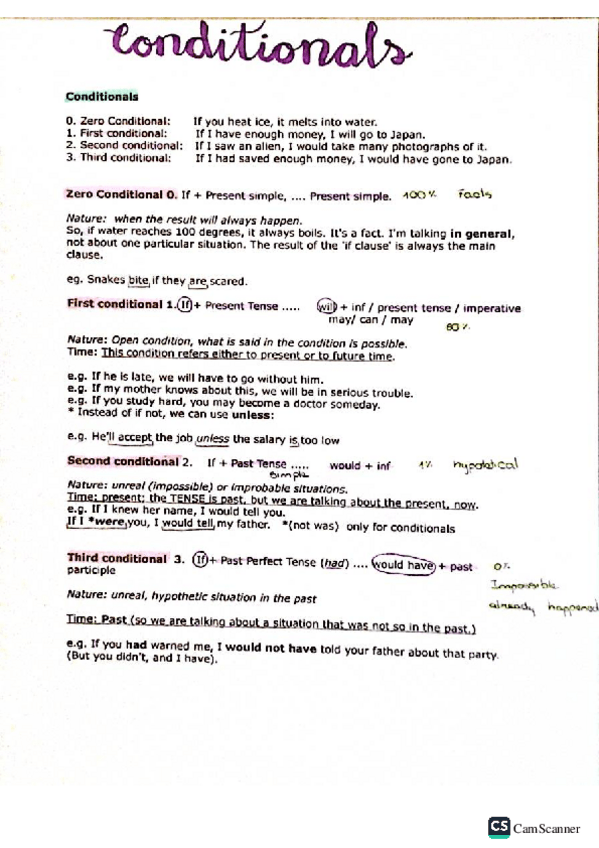 Conditionals
Conditionals
0. Zero Conditional: If you heat ice, it melts into water.
1. First conditional: If I have enough money, I will go to Japan.
2. Second conditional: If I saw an alien, I would take many photographs of it.
3. Third conditional: If I had saved enough money, I would have gone to Japan.
Zero Conditional 0. If + Present simple, .... Present simple. 100% Facts
Nature: when the result will always happen.
So, if water reaches 100 degrees, it always boils. It's a fact. I'm talking in general,
not about one particular situation. The result of the 'if clause' is always the main
clause.
eg. Snakes bite if they are scared.
First conditional 1. If + Present Tense ..... will + inf / present tense / imperative
may/ can / may
80%
Nature: Open condition, what is said in the condition is possible.
Time: This condition refers either to present or to future time.
e.g. If he is late, we will have to go without him.
e.g. If my mother knows about this, we will be in serious trouble.
e.g. If you study hard, you may become a doctor someday.
* Instead of if not, we can use unless:
e.g. He'll accept the job unless the salary is too low
Second conditional 2. If + Past Tense ..... would + inf 1% hypotetical
simple
Nature: unreal (impossible) or improbable situations.
Time: present; the TENSE is past, but we are talking about the present, now.
e.g. If I knew her name, I would tell you.
If I *were you, I would tell my father. *(not was) only for conditionals
Third conditional 3. If + Past Perfect Tense (had) .... would have + past 0%
participle
Impossible
Nature: unreal, hypothetic situation in the past
already happened
Time: Past (so we are talking about a situation that was not so in the past.)
e.g. If you had warned me, I would not have told your father about that party.
(But you didn't, and I have).
CS CamScanner